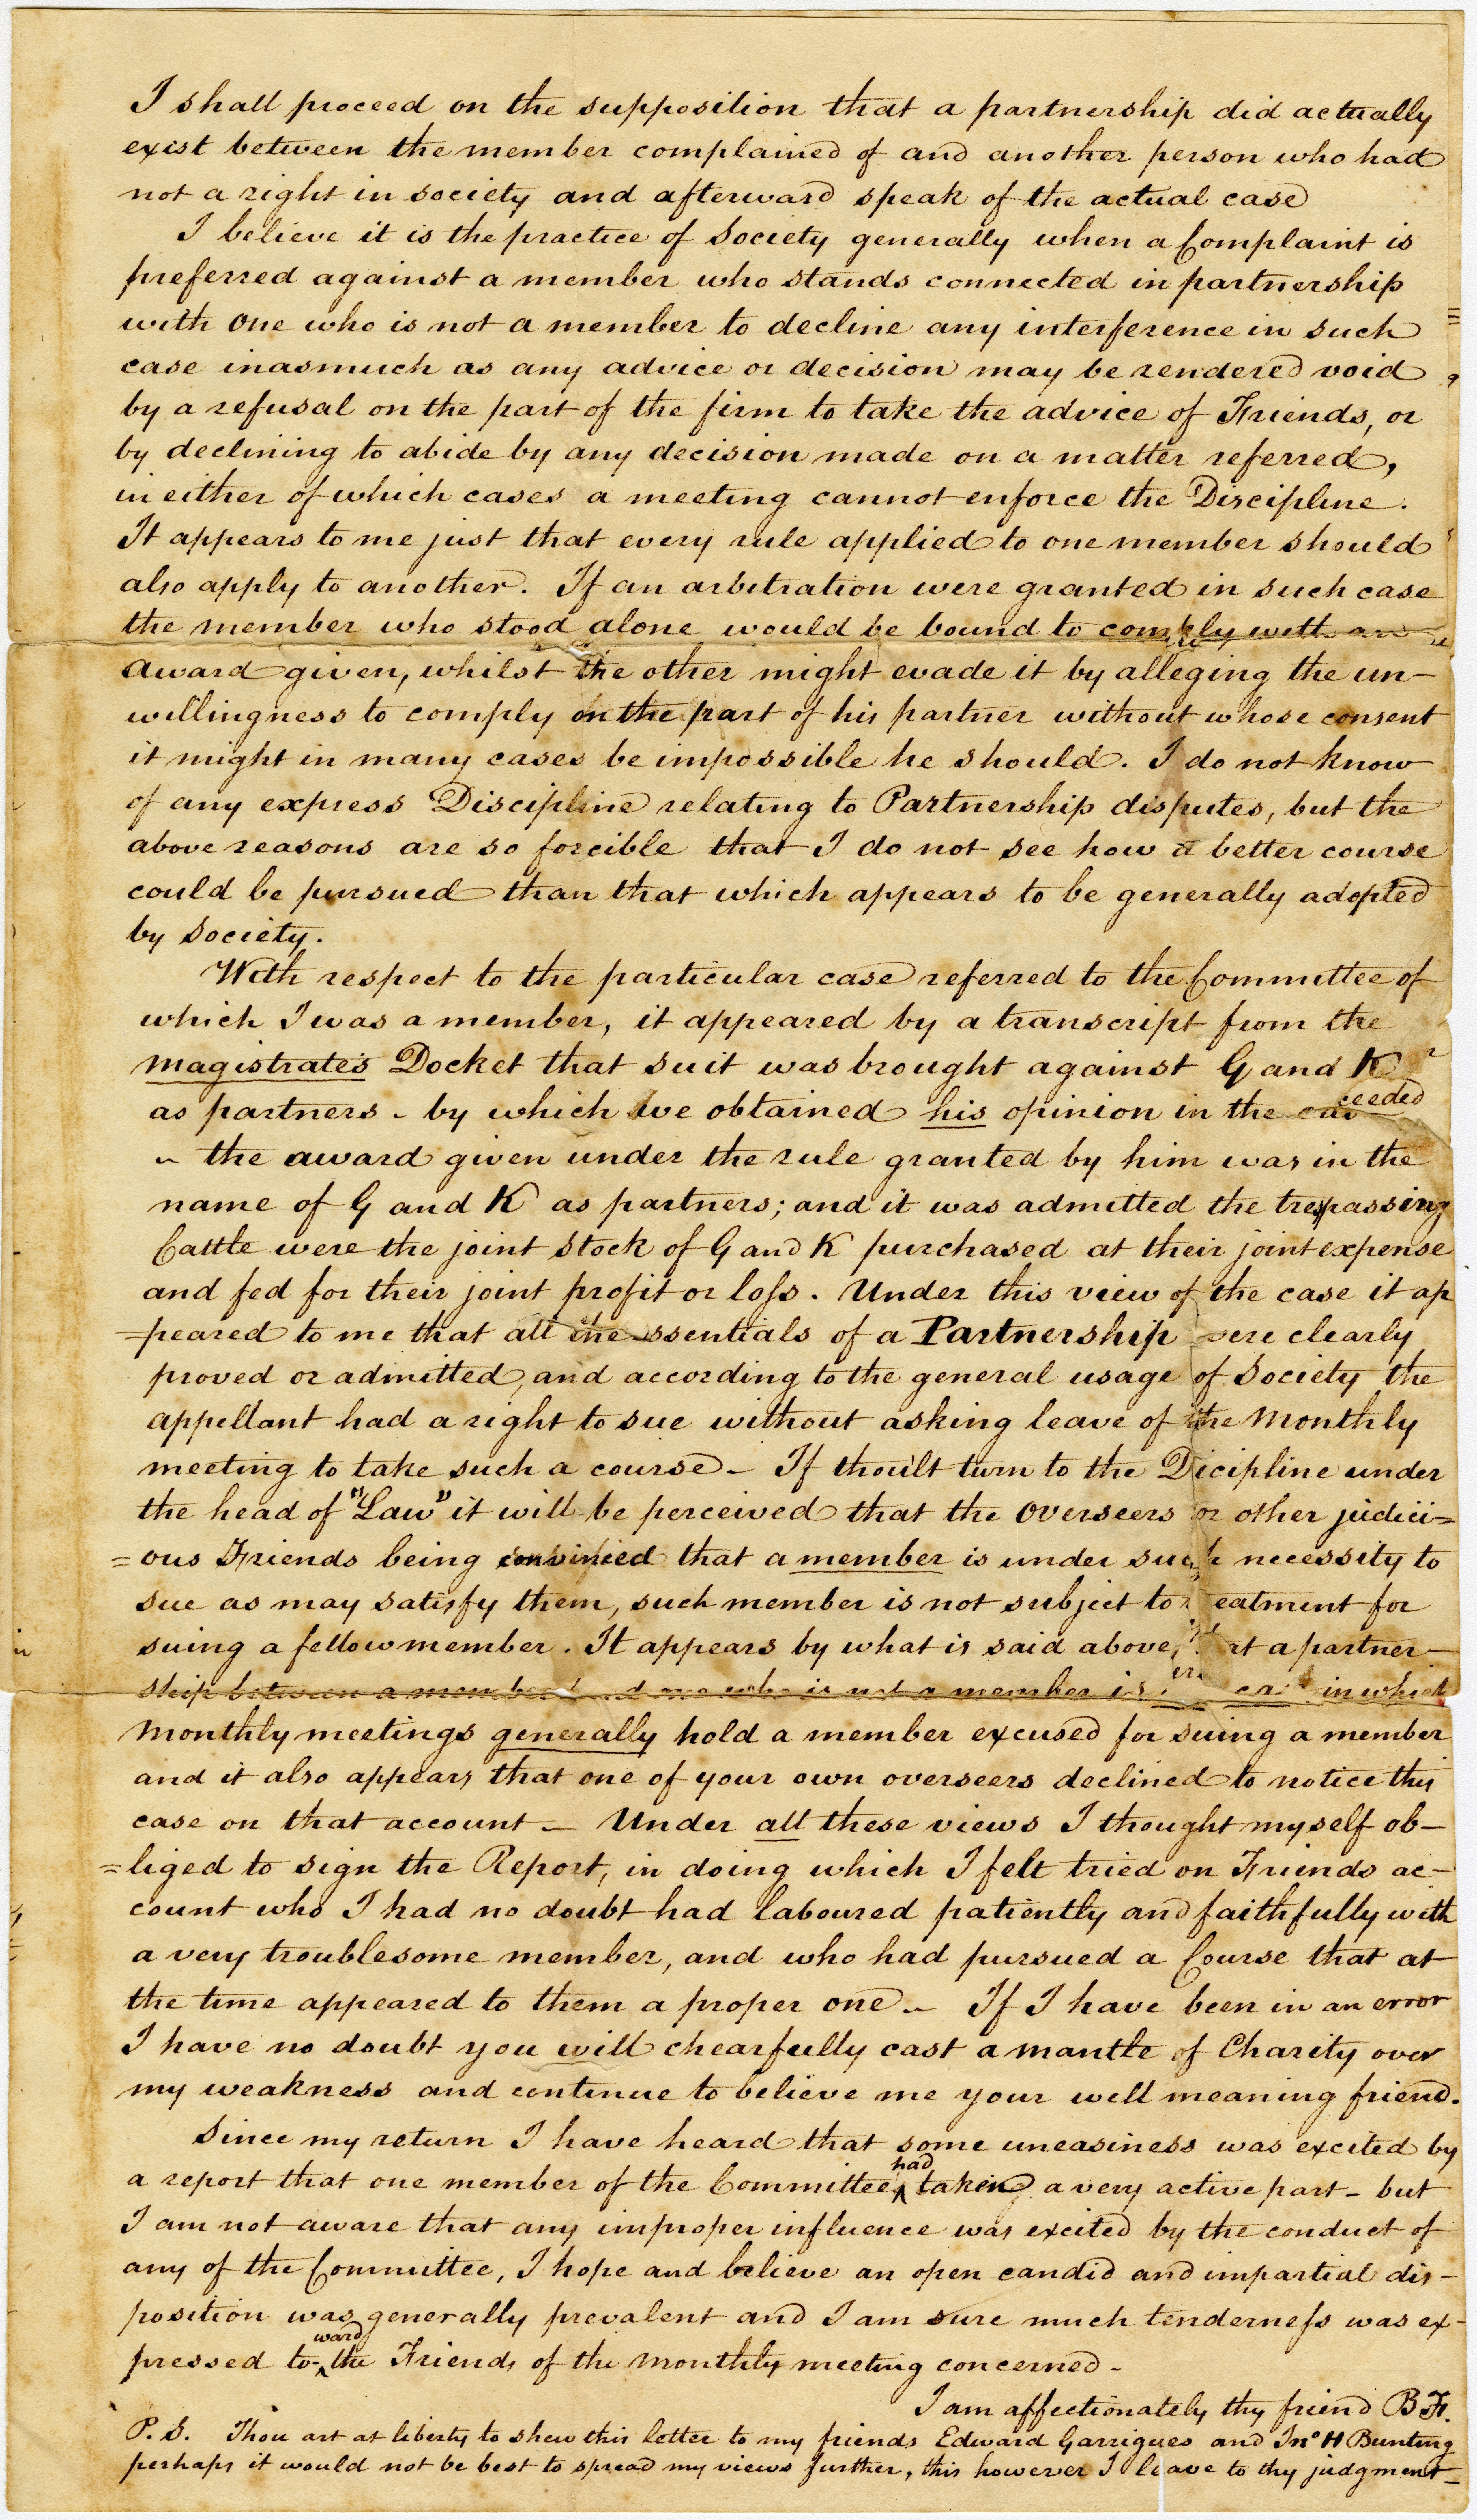 I shall proceed on the supposition that a partnership did actually
exist between the member complained of and another person who had
not a right in society and afterward speak of the actual case
I believe it is the practice of Society generally when a Complaint is
preferred against a member who stands connected in partnership
with one who is not a member to decline any interference in such
case inasmuch as any advice or decision may be rendered void
by a refusal on the part of the firm to take the advice of Friends, or
by declining to abide by any decision made on a matter referred,
in either of which cases a meeting cannot enforce the Discipline.
It appears to me just that every rule applied to one member should
also apply to another. If an arbitration were granted in such case
the member who stood alone would be bound to comply with an
award given, whilst the other might evade it by alleging the un-
willingness to comply on the part of his partner without whose consent
it might in many cases be impossible he should. I do not know
of any express Discipline relating to Partnership disputes, but the
above reasons are so forcible that I do not see how a better course
could be pursued than that which appears to be generally adopted
by Society.
With respect to the particular case referred to the Committee of
which I was a member, it appeared by a transcript from the
magistrate's Docket that suit was brought against G and K
as partners - by which we obtained his opinion in the
- the award given under the rule granted by him was in the
name of G and K as partners; and it was admitted the trespassing
Cattle were the joint stock of G and K purchased at their joint expense
and fed for their joint profit or loss. Under this view of the case it ap
=peared to me that all the essentials of a Partnership were clearly
proved or admitted, and according to the general usage of Society the
appellant had a right to sue without asking leave of the Monthly
meeting to take such a course - If thou'lt turn to the Dicipline under
the head of "Law" it will be perceived that the overseers or other judici=
=ous Friends being convinced that a member is under such necessity to
sue as may satisfy them, such member is not subject to treatment for
suing a fellow member. It appears by what is said above, that a partner-
ship between a member and one who is not a member is in which
monthly meetings generally hold a member excused for suing a member
and it also appears that one of your own overseers declined to notice this
case on that account - Under all these views I thought myself ob-
=liged to sign the Report, in doing which I felt tried on Friends ac-
count who I had no doubt had laboured patiently and faithfully with
a very troublesome member, and who had pursued a Course that at
the time appeared to them a proper one - If I have been in an error
I have no doubt you will chearfully cast a mantle of Charity over
my weakness and continue to believe me your well meaning friend.
Since my return I have heard that some uneasiness was excited by
a report that one member of the Committee had taken a very active part - but
I am not aware that any improper influence was excited by the conduct of
any of the Committee, I hope and believe an open candid and impartial dis-
position was generally prevalent and I am sure much tenderness was ex-
pressed to-ward the Friends of the monthly meeting concerned -
I am affectionately thy friend B F.
P.S. Thou art at liberty to shew this letter to my friends Edward Garrigues and Jno H Bunting
perhaps it would not be best to spread my views further, this however I leave to thy judgment -